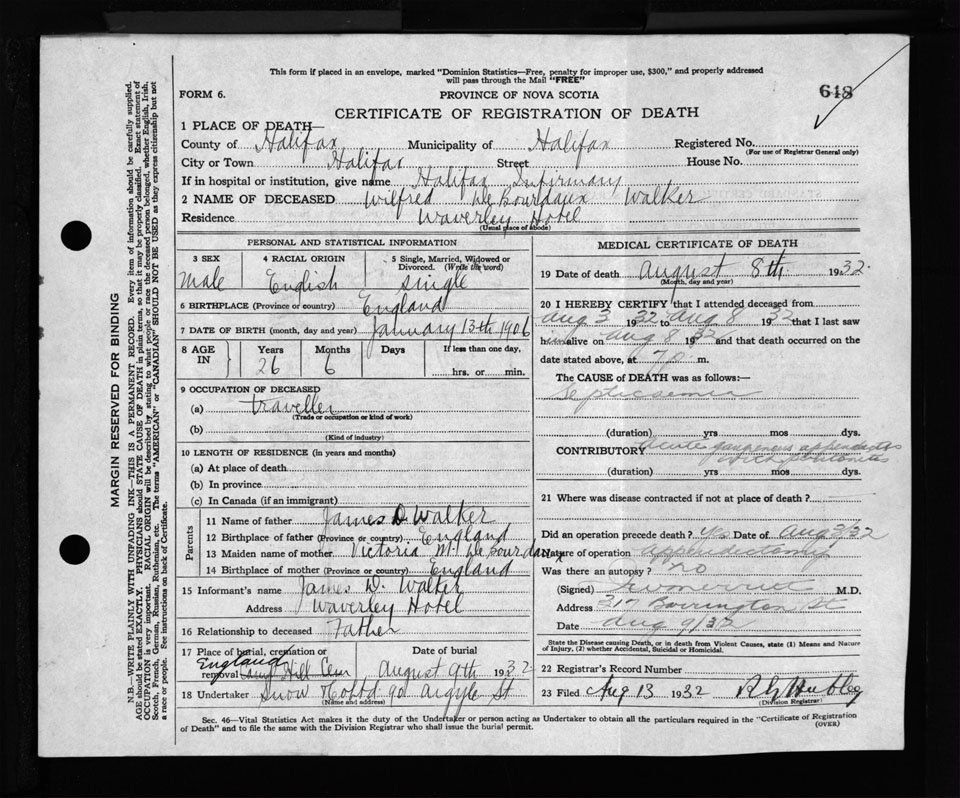 This form if placed in an envelope, marked "Dominion Statistics—Free, penalty for improper use, $300," and properly addressed
will pass through the Mail "FREE"
FORM 6.
PROVINCE OF NOVA SCOTIA
648
CERTIFICATE OF REGISTRATION OF DEATH
1 PLACE OF DEATH—
County of Halifax Municipality of Halifax Registered No.
(For use of Registrar General only)
City or Town Halifax Street House No.
If in hospital or institution, give name Halifax Infirmary
2 NAME OF DECEASED Wilfred De Bourdaux Walker
Residence Waverley Hotel
(Usual place of abode)
PERSONAL AND STATISTICAL INFORMATION
3 SEX 4 RACIAL ORIGIN 5 Single, Married, Widowed or
Divorced. (Write the word)
Male English Single
6 BIRTHPLACE (Province or country) England
7 DATE OF BIRTH (month, day and year) January 13th 1906
8 AGE IN Years Months Days If less than one day,
26 6 hrs. or min.
9 OCCUPATION OF DECEASED
(a) traveller
(Trade or occupation or kind of work)
(b)
(Kind of industry)
10 LENGTH OF RESIDENCE (in years and months)
(a) At place of death
(b) In province
(c) In Canada (if an immigrant)
Parents
11 Name of father James D. Walker
12 Birthplace of father (Province or country) England
13 Maiden name of mother Victoria M. De Bourdaux
14 Birthplace of mother (Province or country) England
15 Informant's name James D. Walker
Address Waverley Hotel
16 Relationship to deceased Father
17 Place of burial, cremation or Date of burial
removal England Camp Hill Cem August 9th 1932
18 Undertaker Snow & Co Ltd 90 Argyle St
(Name and address)
MEDICAL CERTIFICATE OF DEATH
19 Date of death August 8th 1932
(Month, day and year)
20 I HEREBY CERTIFY that I attended deceased from
Aug 3 1932 to Aug 8 1932 that I last saw
him alive on Aug 8 1932 and that death occurred on
date stated above, at m.
The CAUSE of DEATH was as follows:—
Septicsemia
(duration) yrs mos dys.
CONTRIBUTORY Acute gangrenous appendicitis
with peritonitis
(duration) yrs mos dys.
21 Where was disease contracted if not at place of death?
Did an operation precede death? yes Date of Aug 3/32
Nature of operation appendectomy
Was there an autopsy? no
(Signed) M.D.
Address 317 Barrington St
Date Aug 9/32
State the Disease causing Death, or in Death from Violent Causes, state (1) Means and Nature
of Injury, (2) whether Accidental, Suicidal or Homicidal.
22 Registrar's Record Number
23 Filed Aug 13 1932
(Division Registrar)
Sec. 46—Vital Statistics Act makes it the duty of the Undertaker or person acting as Undertaker to obtain all the particulars required in the "Certificate of Registration
of Death" and to file the same with the Division Registrar who shall issue the burial permit.
(OVER)
MARGIN RESERVED FOR BINDING
N.B.—WRITE PLAINLY WITH UNFADING INK—THIS IS A PERMANENT RECORD. Every item of information should be carefully supplied.
AGE should be stated EXACTLY. PHYSICIANS should STATE CAUSE OF DEATH in plain terms, so that it may be properly classified. Exact statement of
OCCUPATION is very important. RACIAL ORIGIN will be described by stating to what people or race the deceased person belonged, whether English, Irish,
Scotch, French, German, Russian, Ruthenian, etc. The terms "AMERICAN" or "CANADIAN" SHOULD NOT BE USED as they express citizenship but not
a race or people. See instructions on back of Certificate.